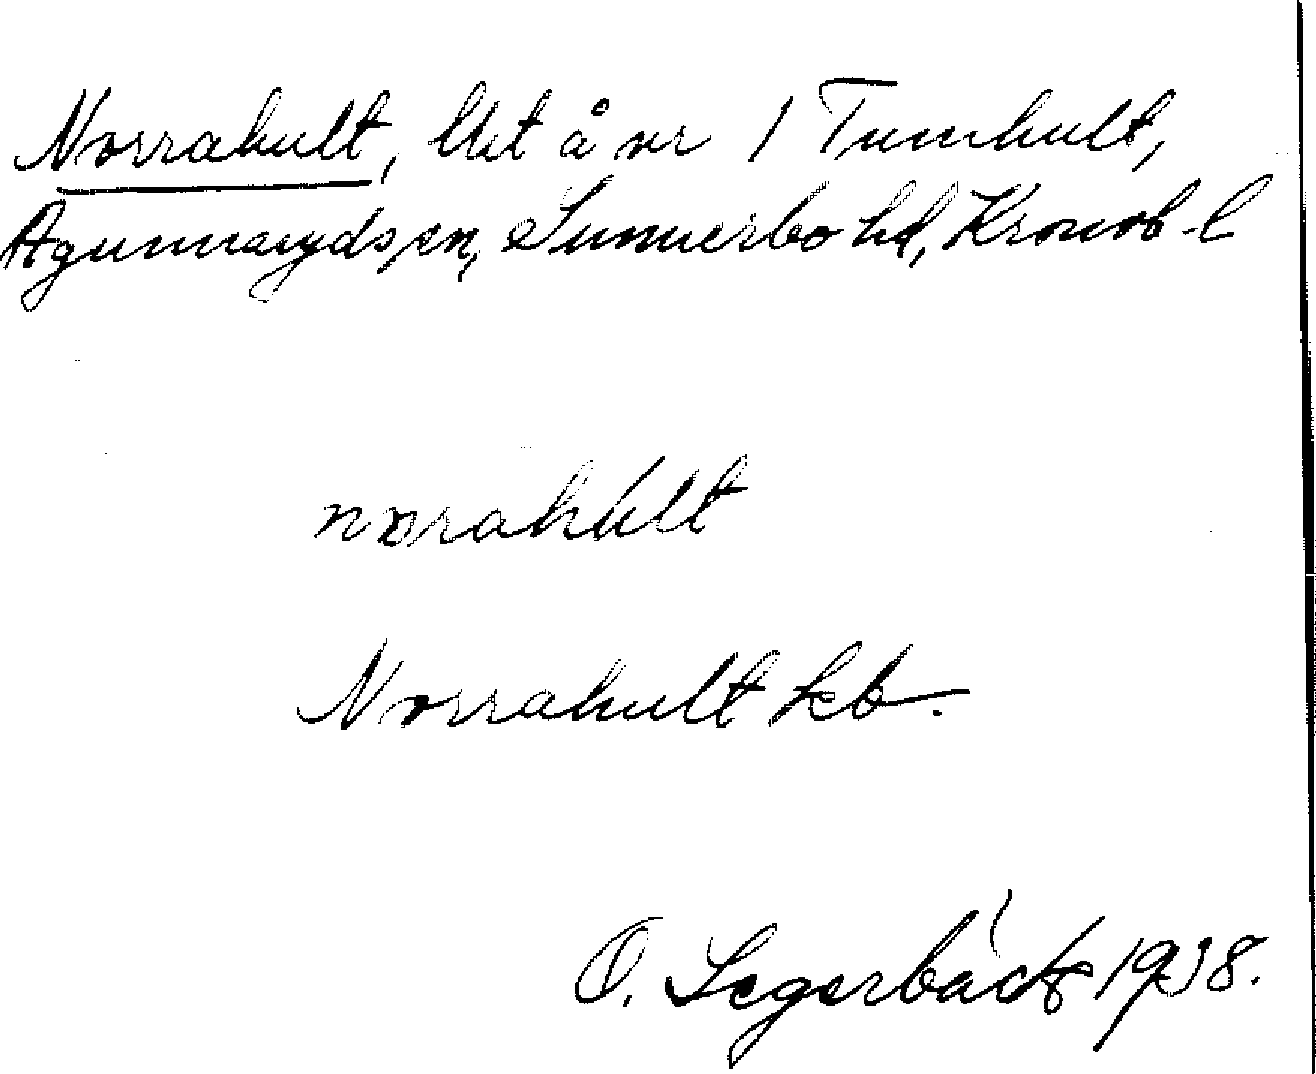 Norrahult, lht å nr 1 Tumhult,
Agunnaryds sn, Sunnerbo hd, Kronob. l
norahult
Norrahult kb.
O. Segerbäck 1938.